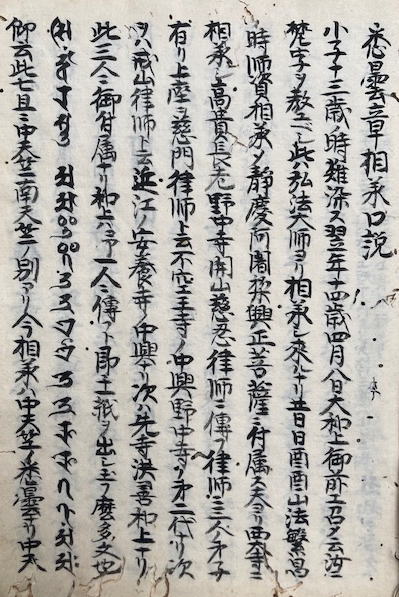 悉曇章相承口説
小子十三歳ノ時薙染ス翌年十四歳四月八日大和上御前エ召メ云汝ニ
梵字ヲ教ユベシ此ハ弘法大師ヨリ相承シ来ルナリ昔日酉酉山法繁昌
時師資相承メ静慶阿闍梨興正菩薩ニ付属ス夫ヨリ西大寺ニ
相承シ高貴長老野中寺開山慈忍律師ニ傳フ律師ニ三人ノ弟子
有リ上座ハ慈門律師ト云不空三王寺ノ中興野中寺ノ第二代ナリ次
ヲハ戒山律師ト云近江ノ安養寺ノ中興ナリ次ハ先寺洪善和上ナリ
此三人ニ御付属ナリ和上ハ予一人ニ傳フト即十二紙ヲ出シ玉フ摩多文也
仰云此七旦ニ中天竺南天竺ノ別アリ今相承ハ中天竺ノ悉曇ナリ中天